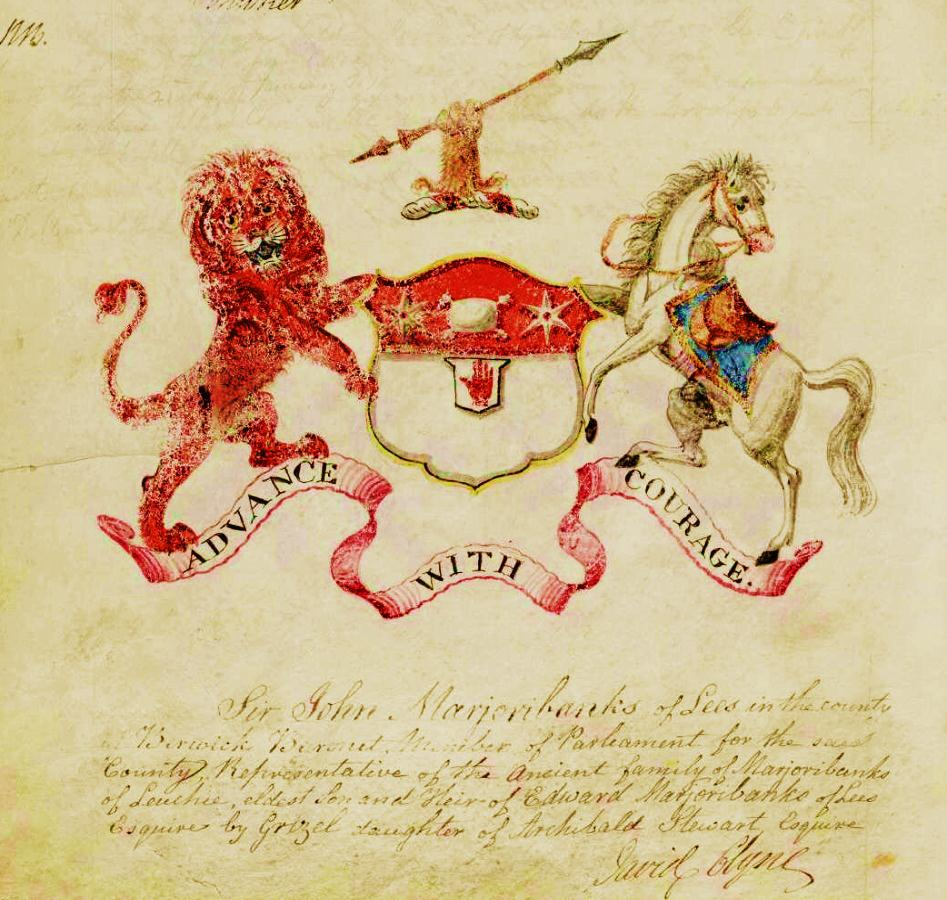 ADVANCE
WITH
COURAGE.
Sir John Marjoribanks of Lees in the county
Berwick Baronet Member of Parliament for the said
County, Representative of the Ancient family of Marjoribanks
of Leuchie, eldest Son and Heir of Edward Marjoribanks of Lees
Esquire by Grizel daughter of Archibald Stewart Esquire
David Clyne